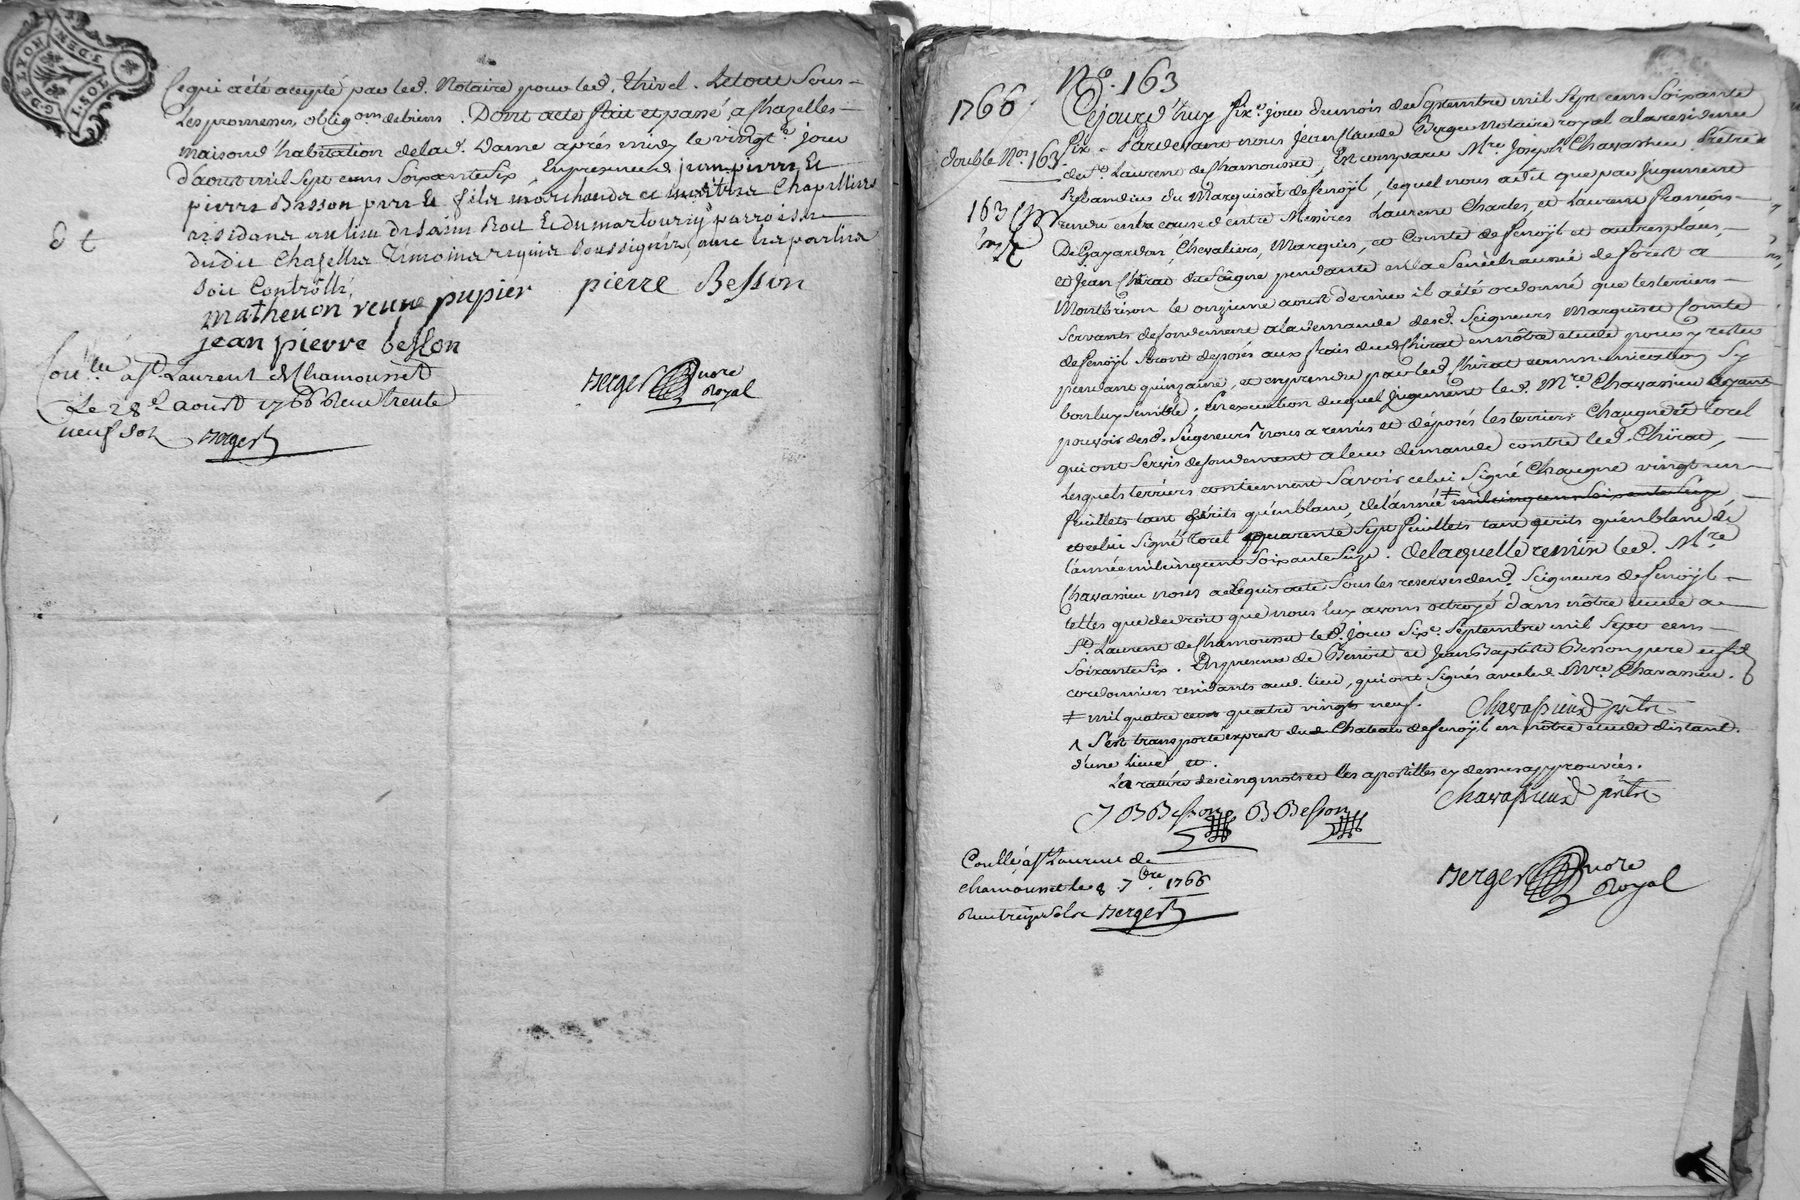 G. DE LYON
1. SOL
8. DEN
Ce qui a été accepté par led. Notaire pour led. Thivel. Letout Sous
Les promesses, obligons. de biens. Dont acte fait et passé a Chazelles
maison d'habitation de lad. Dame après midy le vingte. jour
d'aout mil Sept cens Soixante Six En presence de jean pierre Et
pierre Basson pere Et fils marchands et Chapelliers
residans au lieu de Saint Et du martouray parroisse
dudit Chazelles Temoins requis soussignés, avec les parties
d t
Soit Controllé
matheuon veuue pupier pierre Besson
jean pierre besson
Con.llé a St. Laurent de Chamousset
Le 28e. aoust 1766 Reçu trente
neuf Sols Berger
Berger Nore
Royal
No. 163
1766.
double Non. 163.
163
Cejourd'huy Sixe. jour du mois de Septembre mil Sept cens Soixante
Six. Pardevant nous jean Claude Berger Notaire royal a la residence
de St. Laurent de Chamousset, Est comparu Mre. Joseph Chavassieu Prêtre
Prebandier du Marquisat de fenoÿl, lequel nous a dit que par Jugement
rendu en la cause d'entre Messires Laurent Charles, et Laurent francois
De Gayardon, Chevaliers, Marquis, et Comte de fenoÿl et autres places,
et Jean Chirat de Soûgne pendante en la Senéchaussée de forest a
Montbrison le onzieme aoust dernier il a été ordonné que les terriers
Servants de fondement a la demande desd. Seigneurs Marquis et Comte
de fenoÿl Seront deposés aux frais dud. Chirat en nôtre etude pour y rester
pendant quinzaine, et en prendre par led. Chirat communication Sy
bon luy Semble; En execution duquel Jugement led. Mre. Chavassieu ayant
pouvoir desd. Seigneurs ^ nous a remis et déposés les terriers Chaugne et Torel
qui ont Servis de fondement a leur demande contre led. Chirat,
Lesquels terriers contiennent Savoir celui Signé Chaugne vingt un
feuillets tant écrits qu'en blanc, de l'année ≠ mil cinq cens Soixante Seize
et celui Signé Torel quarente Sept feuillets tant écrits qu'en blanc de
l'année mil cinq cent Soixante Seize. de laquelle remise led. Mre
Chavassieu nous a requis acte Sous les reserves desd. Seigneurs de fenoÿl
telles que de droit que nous luy avons octroyé dans nôtre etude a
St. Laurent de Chamousset led. jour Sixe. Septembre mil Sept cens
Soixante Six. En presence de Benoit et Jean Baptiste Besson pere et fils
cordonniers residants aud. lieu, qui ont Signés avec led. Mre. Chavassieu.
≠ mil quatre cens quatre vingts neuf. Chavassieux prêtre
^ S'est transporté exprest du Chateau de fenoÿl en nôtre etude distant
d'une lieue et.
La rature de cinq mots et les apostilles cy dessus approuvés.
Chavassieux prêtre
J B Besson B Besson
Con.llé a St. Laurent de
chamousset le 8 7bre 1766
Reçu treize Sols Berger
Berger Nore
Royal